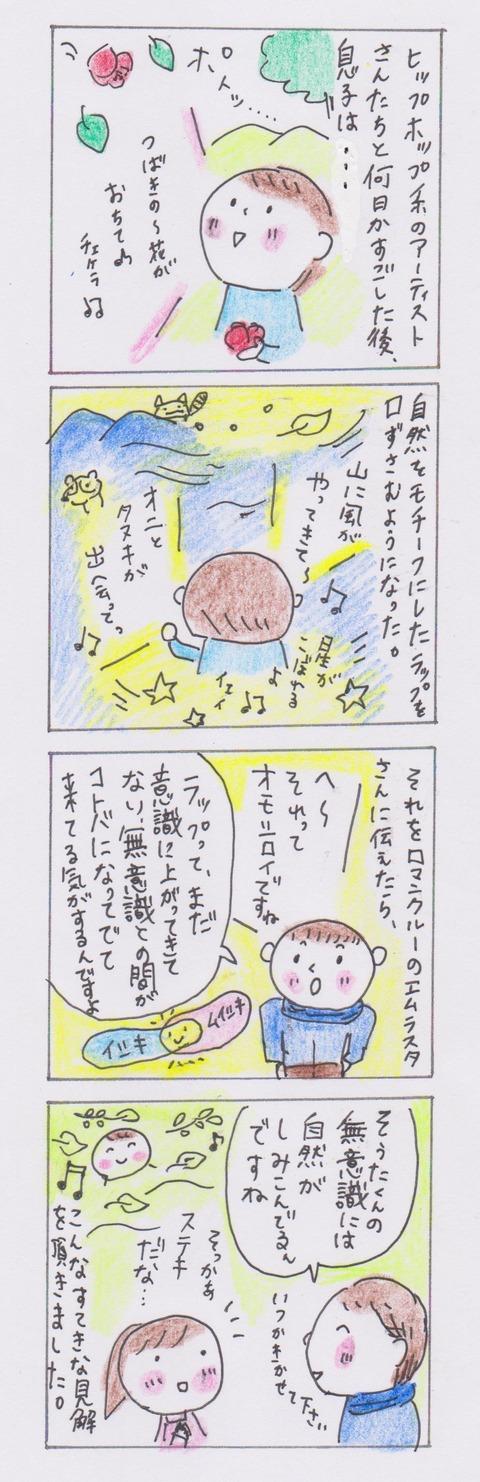 ヒップホップ系のアーティスト
さんたちと何日かすごした後、
息子は
・・・
ポトッ……
つばきの〜花が
おちて♪
チェケラ
♪♫
自然をモチーフにしたラップを
口ずさむようになった。
山に風が
やってきて〜♪
オニと
タヌキが
出会ってっ
♪
星が
こぼれる
よ
イェイ
♫
それをロマンクルーのエムラスタ
さんに伝えたら、
へ〜
それって
オモシロイですね
ラップって、まだ
意識に上がってきて
ない、無意識との間が
コトバになってでて
来てる気がするんですよ
イシキ
ムイシキ
そうたくんの
無意識には
自然が
しみこんでるん
ですね
いつかきかせて下さい
そっかぁ
ステキ
だな…
♪
♫
こんなすてきな見解
を頂きました。